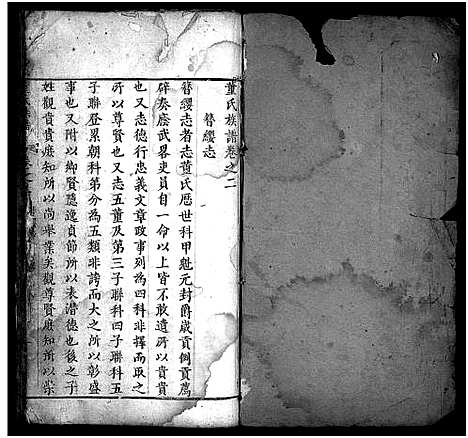 董氏族譜卷之二
簪纓志
簪纓志者志董氏歷世科甲魁元封爵歲貢例貢薦
辟奏廕武畧吏員自一命以上皆不敢遺所以貴貴
也又志德行忠義文章政事列為四科非擇而取之
所以尊賢也又志五董及第三子聯科四子聯科五
子聯登累朝科第分為五類非誇而大之所以彰盛
事也又附以鄉賢隱逸貞節所以表潛德也後之子
姓觀貴貴庶知所以尚舉業矣觀尊賢庶知所以崇